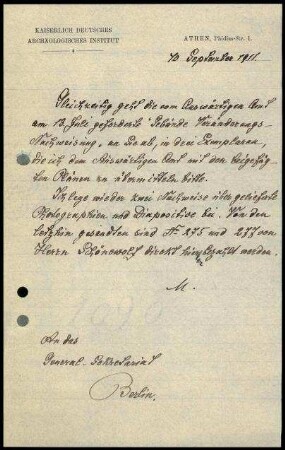 KAISERLICH DEUTSCHES
ARCHÄOLOGISCHES INSTITUT
ATHEN, Phidias-Str. 1.
10 September 1911.
Gleichzeitig geht die vom Auswärtigen Amt
am 13. Juli geforderte Gebäude Veränderungs-
Nachweisung, an Sie ab, in drei Exemplaren,
die ich dem Auswärtigen Amt mit den beigefüg-
ten Plänen zu übermitteln bitte.
Ich lege wieder zwei Nachweise über gelieferte
Photographien und Diapositive bei. Von den
letzthin gesandten sind Nr. 275 und 277 von
Herrn direkt hier bezahlt worden.
M.
An das
General-Sekretariat
Berlin.